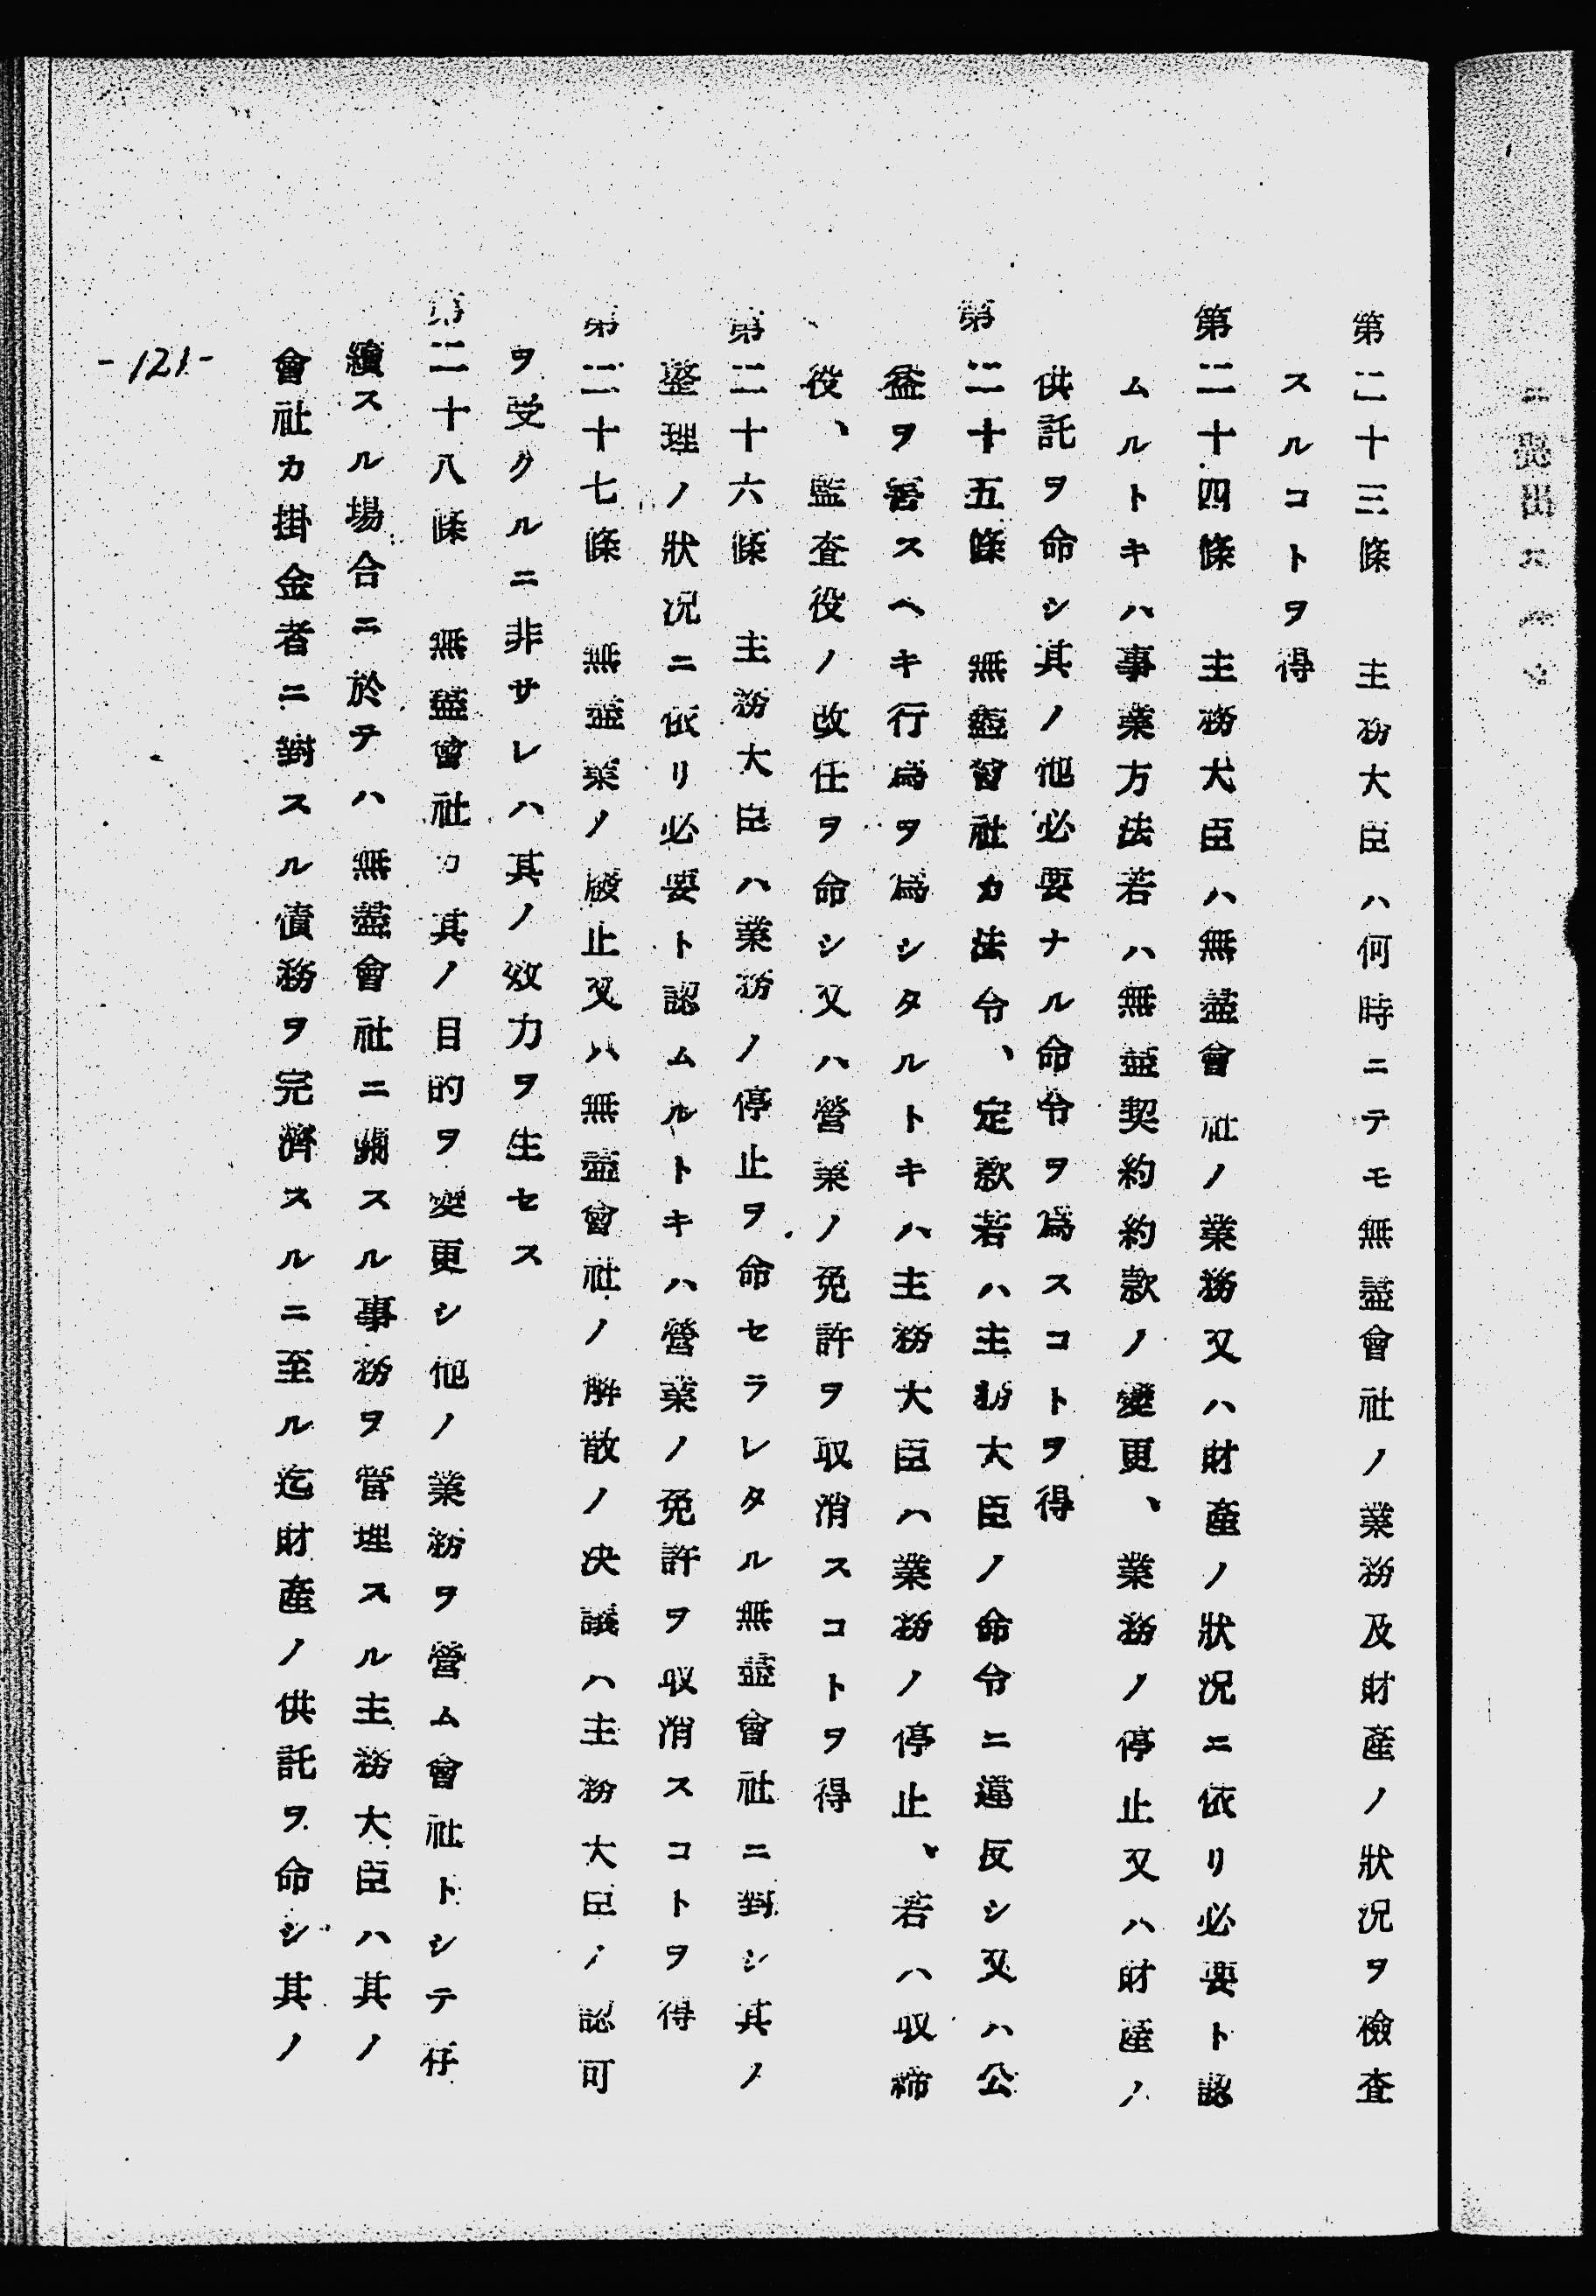 ニ提出ス
第二十三條　主務大臣ハ何時ニテモ無盡會社ノ業務及財產ノ狀況ヲ檢査
スルコトヲ得
第二十四條　主務大臣ハ無盡會社ノ業務又ハ財產ノ狀況ニ依リ必要ト認
ムルトキハ事業方法若ハ無盡契約約款ノ變更、業務ノ停止又ハ財產ノ
供託ヲ命シ其ノ他必要ナル命令ヲ爲スコトヲ得
第二十五條　無盡會社カ法令、定款若ハ主務大臣ノ命令ニ違反シ又ハ公
益ヲ害スヘキ行爲ヲ爲シタルトキハ主務大臣ハ業務ノ停止、若ハ取締
役、監査役ノ改任ヲ命シ又ハ營業ノ免許ヲ取消スコトヲ得
第二十六條　主務大臣ハ業務ノ停止ヲ命セラレタル無盡會社ニ對シ其ノ
整理ノ狀況ニ依リ必要ト認ムルトキハ營業ノ免許ヲ取消スコトヲ得
第二十七條　無盡業ノ廢止又ハ無盡會社ノ解散ノ決議ハ主務大臣ノ認可
ヲ受クルニ非サレハ其ノ效力ヲ生セス
第二十八條　無盡會社カ其ノ目的ヲ變更シ他ノ業務ヲ營ム會社トシテ存
續スル場合ニ於テハ無盡會社ニ關スル事務ヲ管理スル主務大臣ハ其ノ
會社カ掛金者ニ對スル債務ヲ完濟スルニ至ル迄財產ノ供託ヲ命シ其ノ
-121-